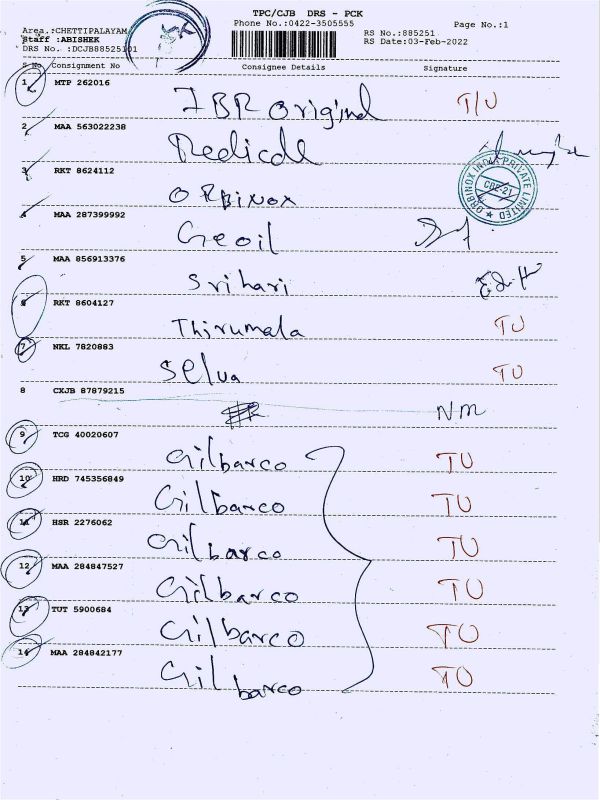 TPC/CJB DRS - PCK
Area.:CHETTIPALAYAM Phone No.:0422-3505555 Page No.:1
Staff :ABISHEK RS No.:885251
DRS No. :DCJB88525101 RS Date:03-Feb-2022
S No Consignment No Consignee Details Signature
1 MTP 262016
IBR Original T/U
2 MAA 563022238
Medicall
3 RKT 8624112
ORBINOX
ORBINOX INDIA PRIVATE LIMITED
CBE-21
4 MAA 287399992
Geoil
5 MAA 856913376
Srihari
6 RKT 8604127
Thirumala TU
7 NKL 7820883
Selva TU
8 CXJB 87879215
NM
9 TCG 40020607
Gilbarco TU
10 HRD 745356849
Gilbarco TU
11 HSR 2276062
Gilbarco TU
12 MAA 284847527
Gilbarco TU
13 TUT 5900684
Gilbarco TU
14 MAA 284842177
Gilbarco TU